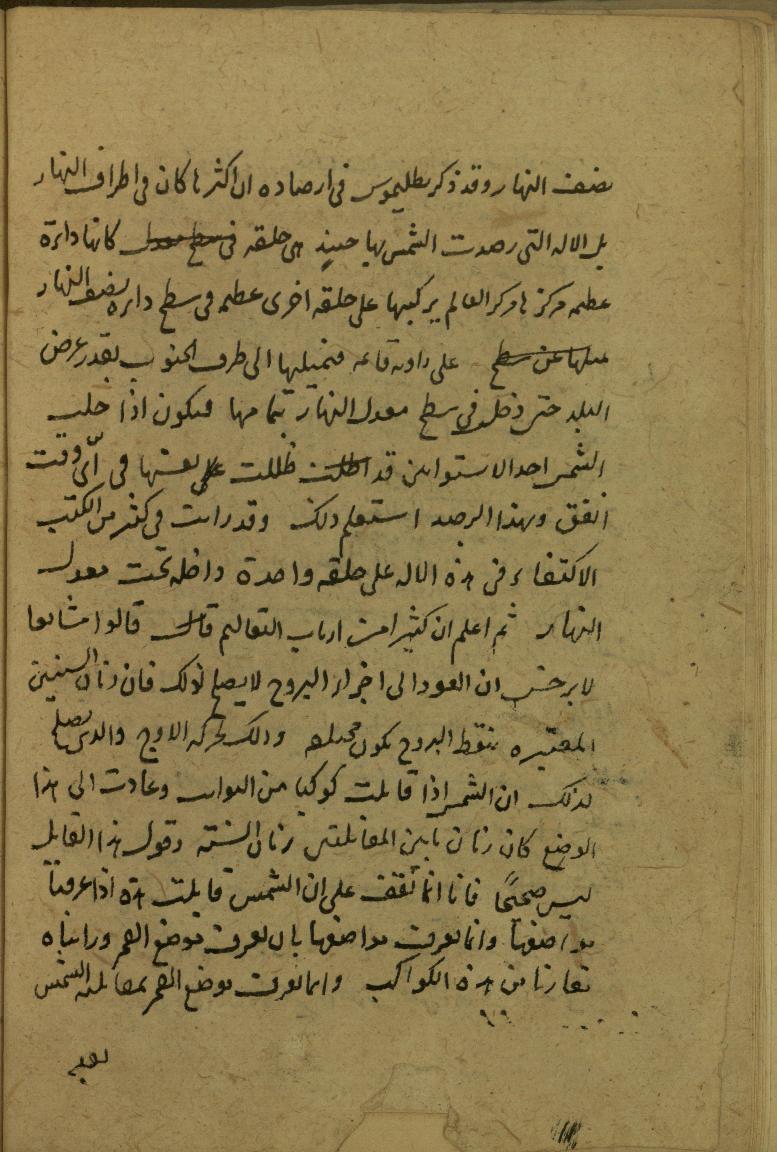 نصف النهار وقد ذكر بطليموس فى ارصاده ان اكثرها كان فى اطراف النهار
بل الاله التى رصدت الشمس بها حينئذ هى حلقه فى سطح معدل كانها دائرة
عظمه مركزها مركز العالم يركبها على حلقه اخرى عظمه فى سطح دايره نصف النهار
ميلها عن سطح على زاويه قاعه فتميلها الى طرف الجنوب بقدر عرض
البلد حتى دخلت فى سطح معدل النهار بتمامها فيكون اذا حلت
الشمس احد الاستوايين قد اظلت ظللت على بعضها فى اى وقت
اتفق وبهذا الرصد استعلم ذلك وقد رايت فى كثير من الكتب
الاكتفاء فى هذه الاله على حلقه واحدة داخله تحت معدل
النهار ثم اعلم ان كثيرا من ارباب التعاليم قال قالوا متابعا
لابرخس ان العود الى اجزاء البروج لا يصلح لذلك فان زمان السنين
المعتبره بنقط البروج يكون مختلفه وذلك لحركه الاوج والذى يصلح
لذلك ان الشمس اذا قابلت كوكبا من الثوابت وعادت الى هذا
الوضع كان زمان ما بين المقابلتين زمان السنة وقول هذا القايل
ليس صحيحًا فانا انما نقف على ان الشمس قابلت هذه اذا عرفنا
مواضعها وانما يعرف مواضعها بان يعرف موضع القمر ورايناه
مقارنا من هذه الكواكب وانما يعرف موضع القمر بمقابلته الشمس